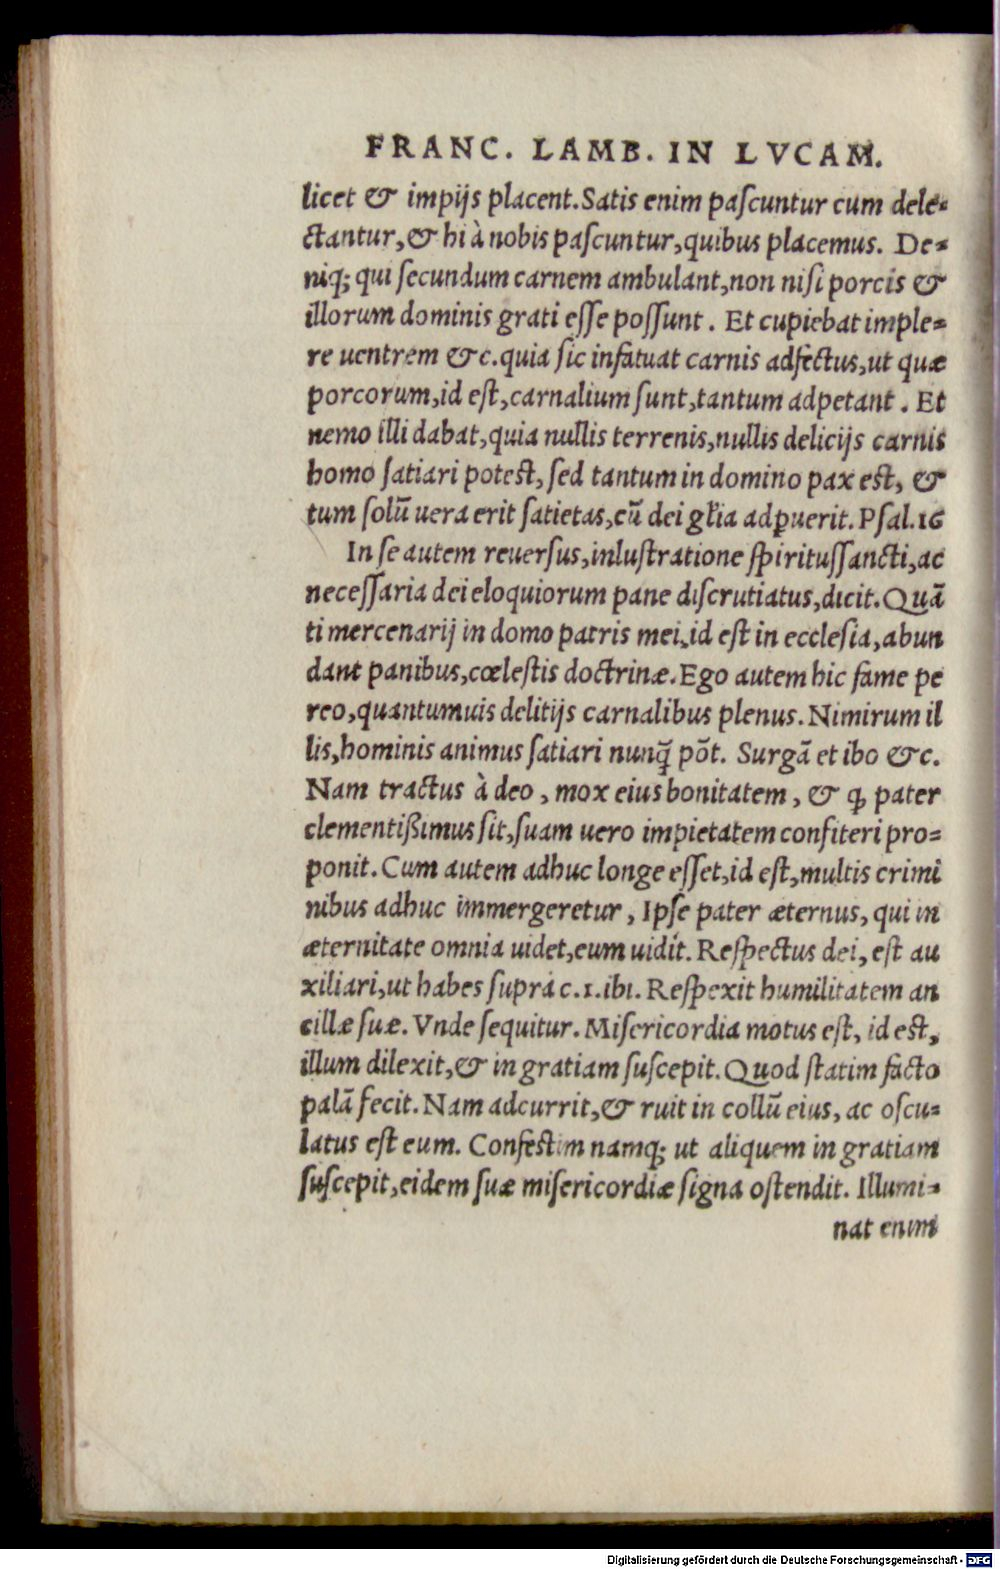 FRANC. LAMB. IN LVCAM.
licet & impijs placent. Satis enim paſcuntur cum dele-
ctantur, & hi à nobis paſcuntur, quibus placemus. De-
niq; qui ſecundum carnem ambulant, non niſi porcis &
illorum dominis grati eſſe poſſunt. Et cupiebat imple-
re uentrem &c. quia ſic infatuat carnis adfectus, ut quæ
porcorum, id eſt, carnalium ſunt, tantum adpetant. Et
nemo illi dabat, quia nullis terrenis, nullis delicijs carnis
homo ſatiari poteſt, ſed tantum in domino pax eſt, &
tum ſolū uera erit ſatietas, cū dei gl̄ia adꝑuerit. Pſal. 16
In ſe autem reuerſus, inluſtratione ſpirituſſancti, ac
neceſſaria dei eloquiorum pane diſcrutiatus, dicit. Quā
ti mercenarij in domo patris mei, id eſt in eccleſia, abun
dant panibus, cœleſtis doctrinæ. Ego autem hic fame pe
reo, quantumuis delitijs carnalibus plenus. Nimirum il
lis, hominis animus ſatiari nunq̄ pōt. Surgā et ibo &c.
Nam tractus à deo, mox eius bonitatem, & ꝙ pater
clementißimus ſit, ſuam uero impietatem confiteri pro-
ponit. Cum autem adhuc longe eſſet, id eſt, multis crimi
nibus adhuc immergeretur, Ipſe pater æternus, qui in
æternitate omnia uidet, eum uidit. Reſpectus dei, eſt au
xiliari, ut habes ſupra c. 1. ibi. Reſpexit humilitatem an
cillæ ſuæ. Vnde ſequitur. Miſericordia motus eſt, id eſt,
illum dilexit, & in gratiam ſuſcepit. Quod ſtatim facto
palā fecit. Nam adcurrit, & ruit in collū eius, ac oſcu-
latus eſt eum. Confeſtim namq; ut aliquem in gratiam
ſuſcepit, eidem ſuæ miſericordiæ ſigna oſtendit. Illumi-
nat enim
Digitalisierung gefördert durch die Deutsche Forschungsgemeinschaft - DFG